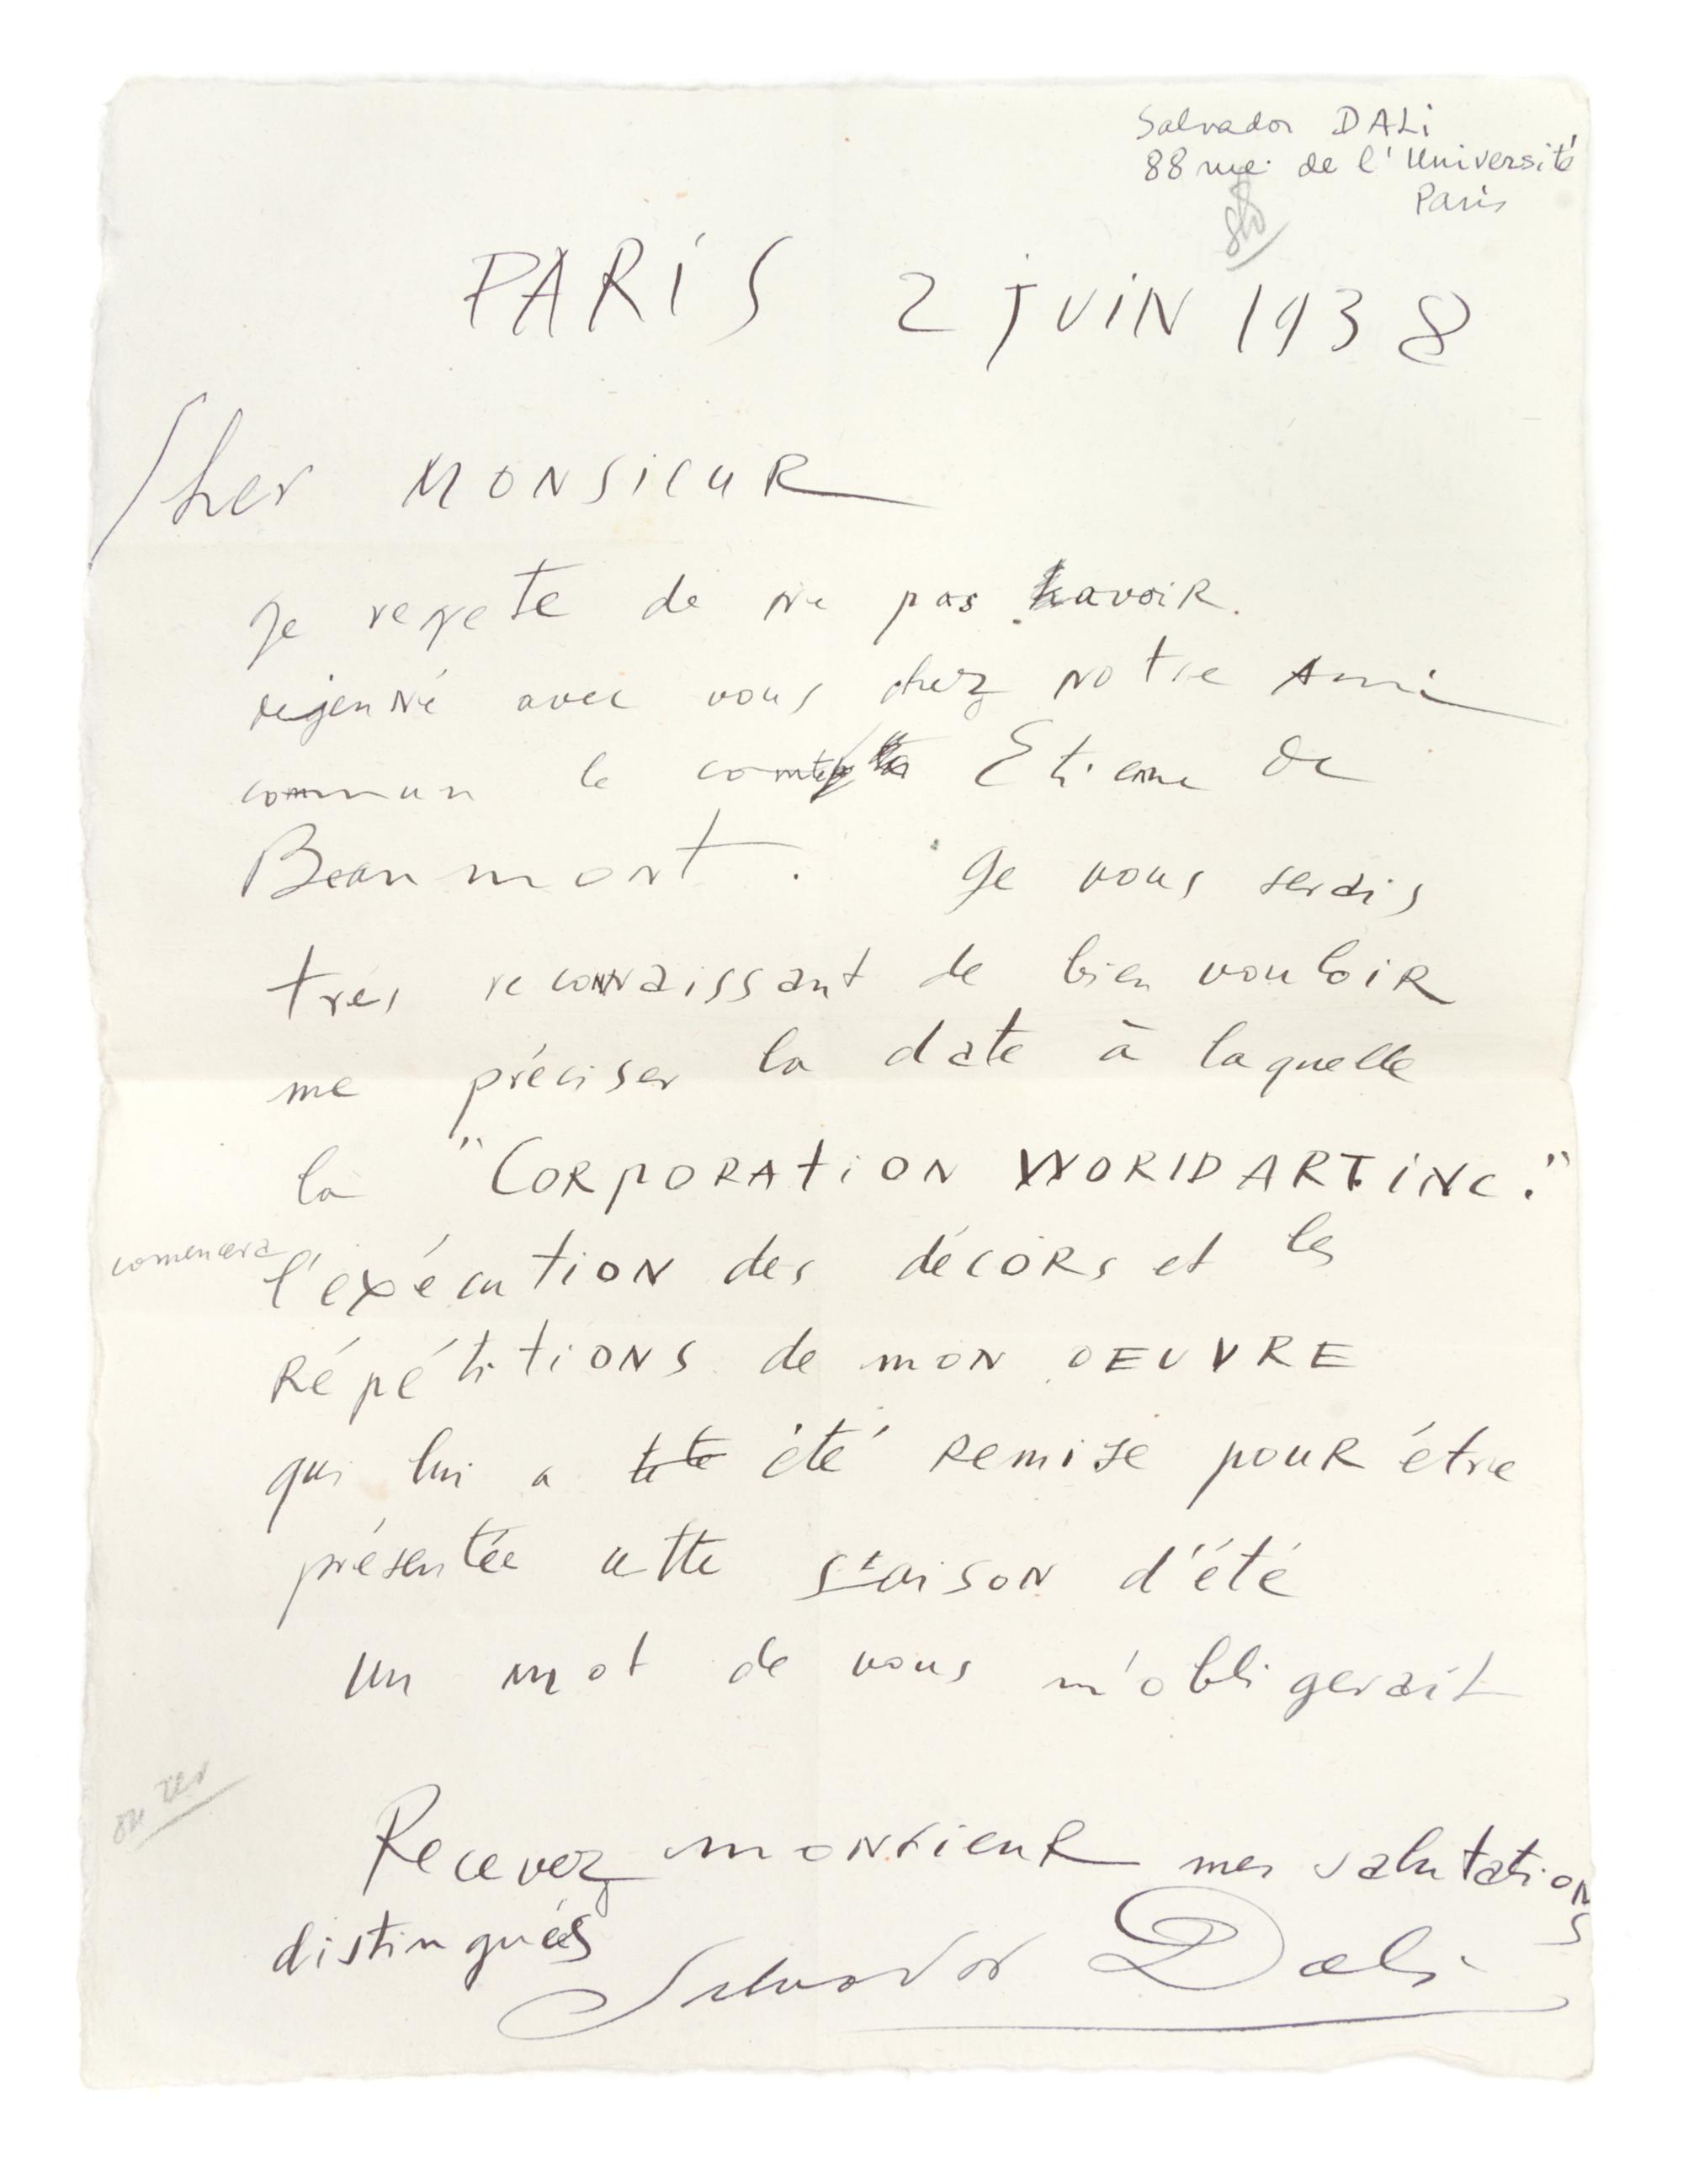 Salvador DALi
88 rue de l'Université
Paris
PARiS 2 jUiN 1938
Cher MONSieuR
Je regete de ne pas avoiR
dejenné avec vous chez notre Ami
commun le comte Etiene de
Beaumont. Je vous serais
très reconnaissant de bien vouloiR
me préciser la date à laquelle
la "CORpORAtiON WORlD ART iNc."
comencera l'exécution des décORs et les
Répétitions de mon OEUVRE
qui lui a été Remise pouR être
présentée cette saison d'été
un mot de vous m'obligerait
Recevez monsieuR mes salutations
distinguées Salvador Dali